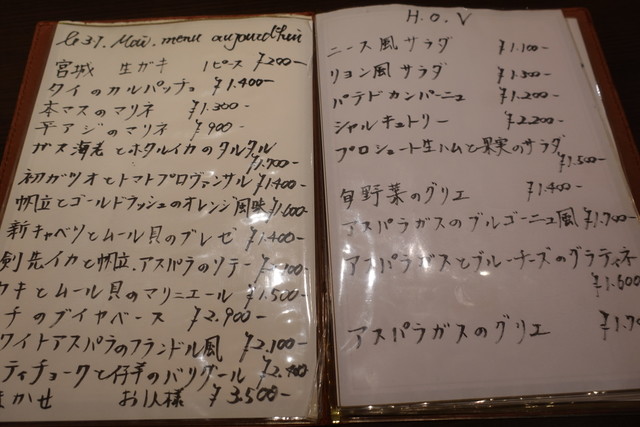 le 31. Mai. menu aujourd'hui
宮城 生ガキ 1ピース ¥200-
タイのカルパッチョ ¥1.400-
本マスのマリネ ¥1.300-
平アジのマリネ ¥900-
ガス海老とホタルイカのタルタル
¥1.700-
初ガツオとトマトプロヴァンサル ¥1.400-
帆立とゴールドラッシュのオレンジ風味
新キャベツとムール貝のブレゼ ¥1.400-
剣先イカと帆立.アスパラのソテー
カキとムール貝のマリニエール ¥1.500-
チのブイヤベース ¥2.900-
ワイトアスパラのフランドル風 ¥2.100-
ティチョークと仔羊のバリグール
まかせ お1人様 ¥3.500-
H.O.V
ニース風サラダ ¥1.100-
リヨン風サラダ ¥1.500-
パテドカンパーニュ ¥1.200-
シャルキュトリー ¥2.200-
プロシュート生ハムと果実のサラダ
¥1.500-
旬野菜のグリエ ¥1.400-
アスパラガスのブルゴーニュ風 ¥1.700-
アスパラガスとブルーチーズのグラティネ
¥1.600
アスパラガスのグリエ ¥1.7